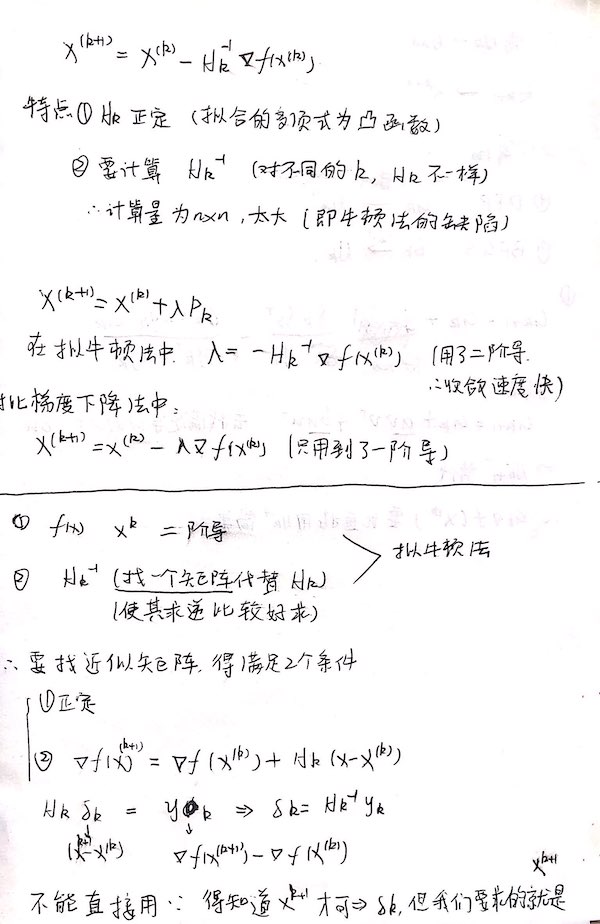 x^(k+1) = x^(k) - H_k^-1 ∇f(x^(k))
特点 ① H_k 正定 (拟合的多项式为凸函数)
② 要计算 H_k^-1 (对不同的k, H_k不一样)
∴计算量为n×n, 太大 (即牛顿法的缺陷)
x^(k+1) = x^(k) + λP_k
在拟牛顿法中 λ = -H_k^-1 ∇f(x^(k)) (用了二阶导.
∴收敛速度快)
对比梯度下降法中:
x^(k+1) = x^(k) - λ∇f(x^(k)) (只用到了一阶导)
① f(x) x^k 二阶导
② H_k^-1 (找一个矩阵代替 H_k)
(使其求逆比较好求)
拟牛顿法
∴要找近似矩阵, 得满足2个条件
①正定
② ∇f(x)^(k+1) = ∇f(x^(k)) + H_k(x-x^(k))
H_k δ_k = y_k ⇒ δ_k = H_k^-1 y_k
(x^(k+1)-x^(k)) ∇f(x^(k+1)) - ∇f(x^(k))
不能直接用 ∵ 得知道x^(k+1)才可⇒δ_k, 但我们要求的就是x^(k+1)